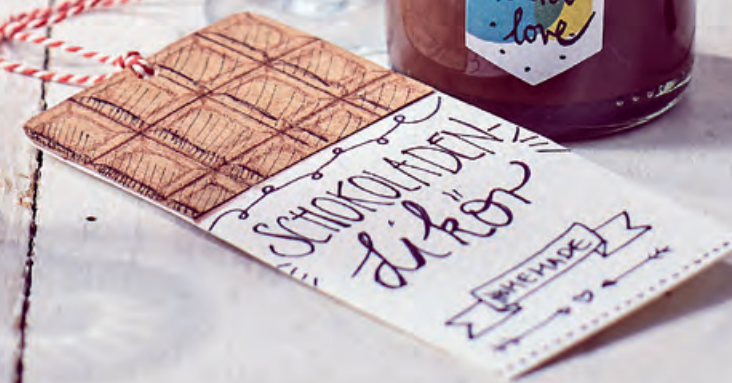 love
SCHOKOLADEN-
Likör
HOMEMADE